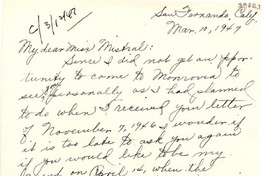 San Fernando, Calif.
c/3/13/47
Mar. 10, 1947
My dear Miss Mistral:
Since I did not get an oppor-
tunity to come to Monrovia to
see personally as I had planned
to do when I received your letter
of November 7, 1946 I wonder if
it is too late to ask you again
if you would like to be my
guest on April 14, when the